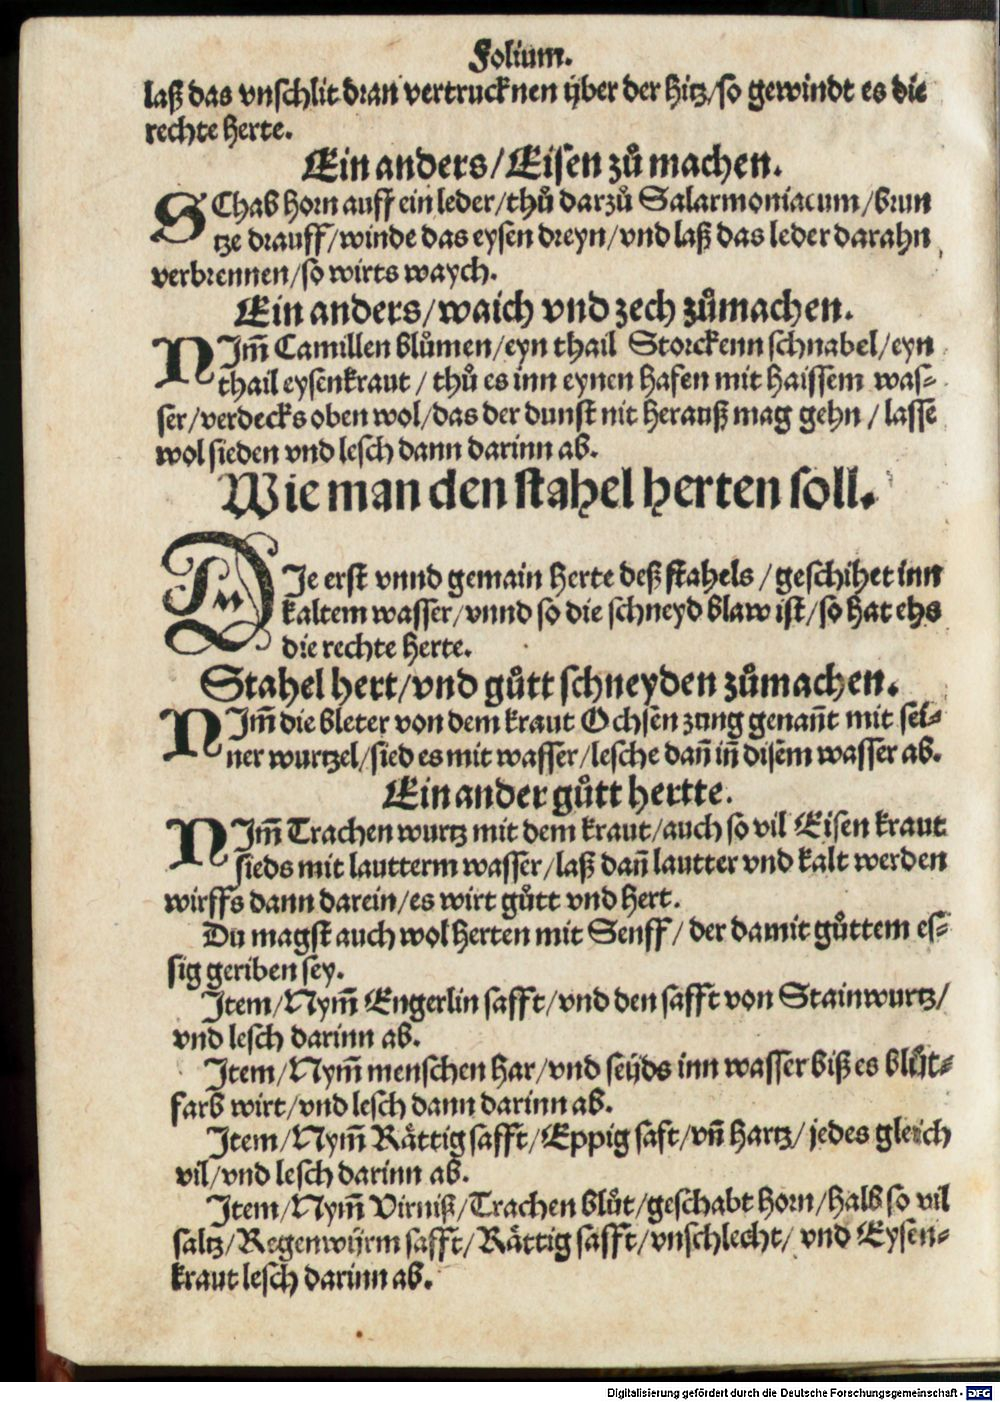 Folium.
laß das vnschlit dran vertrucknen vͤber der hitz/so gewindt es die
rechte herte.
Ein anders/Eisen zů machen.
SChab horn auff ein leder/thů darzů Salarmoniacum/brun
tze drauff/winde das eysen dreyn/vnd laß das leder darahn
verbrennen/so wirts waych.
Ein anders/waich vnd zech zůmachen.
NIm̄ Camillen blůmen/eyn thail Storckenn schnabel/eyn
thail eysenkraut / thů es inn eynen hafen mit haissem was-
ser/verdecks oben wol/das der dunst nit herauß mag gehn / lasse
wol sieden vnd lesch dann darinn ab.
Wie man den stahel herten soll.
DIe erst vnnd gemain herte deß stahels / geschihet inn
kaltem wasser/vnnd so die schneyd blaw ist/so hat ehs
die rechte herte.
Stahel hert/vnd gůtt schneyden zůmachen.
NIm̄ die bleter von dem kraut Ochsen zung genan̄t mit sei-
ner wurtzel/sied es mit wasser/lesche dan̄ in̄ disem wasser ab.
Ein ander gůtt hertte.
NIm̄ Trachen wurtz mit dem kraut/auch so vil Eisen kraut
sieds mit lautterm wasser/laß dan̄ lautter vnd kalt werden
wirffs dann darein/es wirt gůtt vnd hert.
Du magst auch wol herten mit Senff/ der damit gůttem es-
sig geriben sey.
Item/Nym̄ Engerlin safft/vnd den safft von Stainwurtz/
vnd lesch darinn ab.
Item/Nym̄ menschen har/vnd seÿds inn wasser biß es blůt-
farb wirt/vnd lesch dann darinn ab.
Item/Nym̄ Raͤttig safft/Eppig saft/vn̄ hartz/jedes gleich
vil/vnd lesch darinn ab.
Item/Nym̄ Virniß/Trachen blůt/geschabt horn/halb so vil
saltz/Regenwÿrm safft/Raͤttig safft/vnschlecht/ vnd Eysen-
kraut lesch darinn ab.
Digitalisierung gefördert durch die Deutsche Forschungsgemeinschaft - DFG